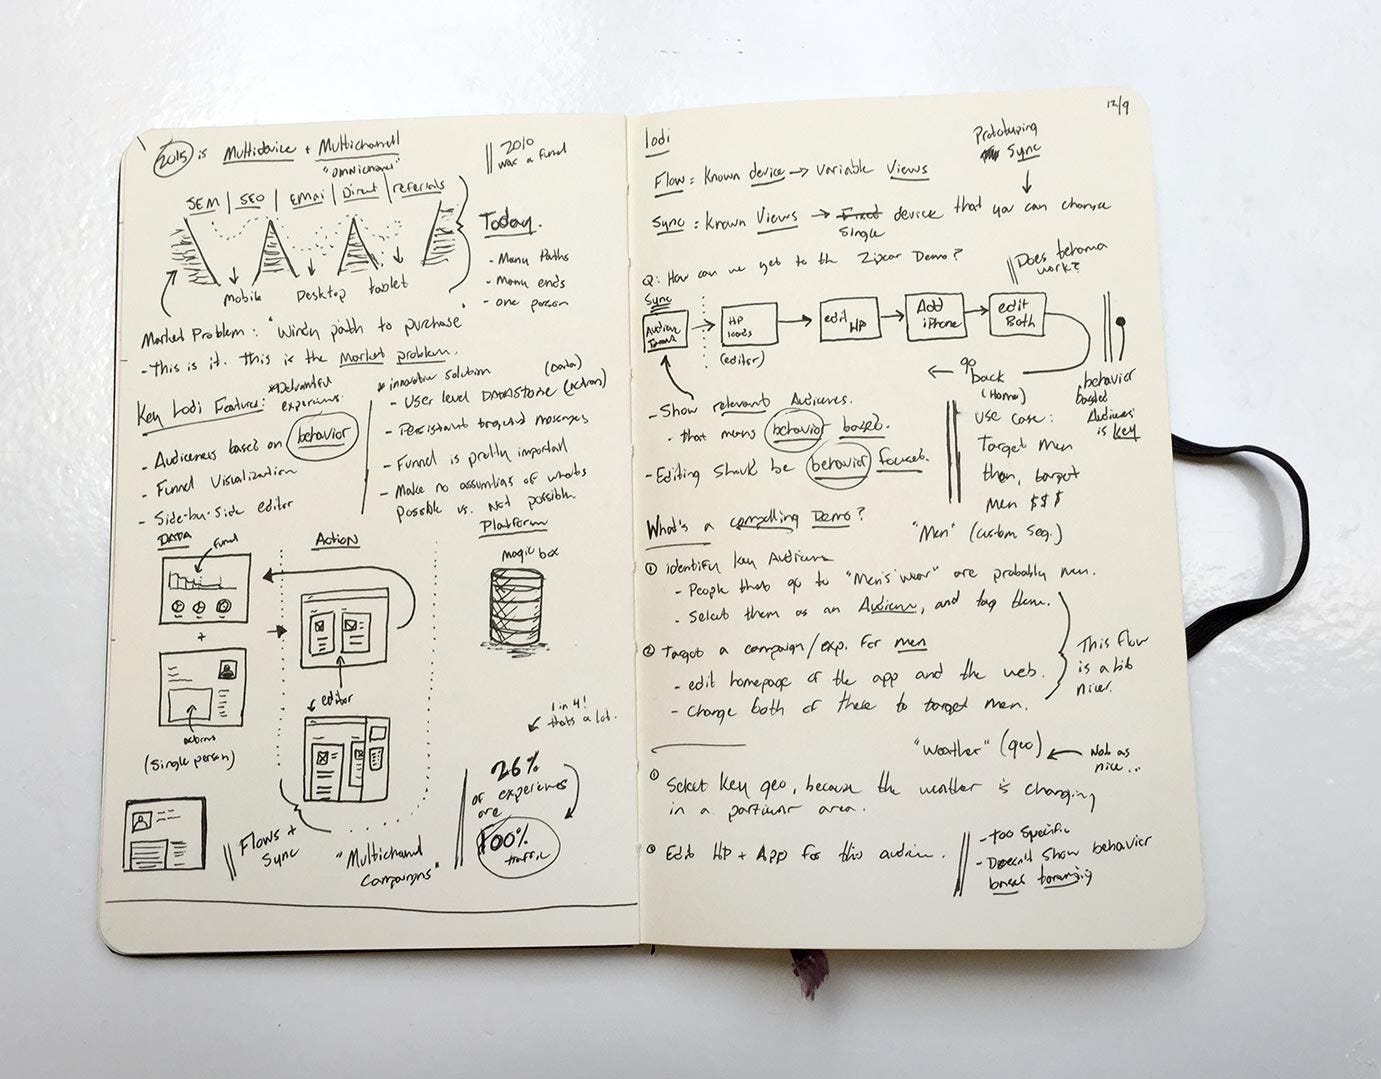 2015 is Multidevice + Multichannel
"omnichannel"
2010
was a funnel
SEM | SEO | EMAil | Direct | referrals
Today.
- Many Paths
- Many ends
- one person
Mobile Desktop tablet
Market Problem: "Windy path to purchase"
- This is it. This is the Market problem.
Key Lodi Features:
experiences.
- Audiences based on behavior
- Funnel Visualization
- Side-by-Side editor
* innovative solution (Data)
- User level DATASTORE (Action)
- Persistant targeted messages
- Funnel is pretty important
- Make no assumtions of whats
possible vs. Not possible
DATA
funnel
+
actions
(Single person)
Action
editor
Platform
magic box
1 in 4!
thats a lot.
26%
of experiences
are
100%
traffic
Flows +
Sync
"Multichannel
Campaigns"
12/9
Lodi
Prototyping
Sync
Flow = Known device → Variable Views
Sync = Known Views → Fixed device that you can change
Single
Q: How can we get to the Zipcar Demo?
Does
work?
Sync
HP
loads
(editor)
edit HP
Add
iPhone
edit
Both
go
back
(Home)
behavior
based
Audiences
is key
- Show relevant Audiences.
- that means behavior based.
- Editing should be behavior focused.
Use Case:
Target men
then, target
men $$$
What's a compelling Demo?
"Men" (custom Seg.)
① identify key Audience
- People that go to "Men's wear" are probably men.
- Select them as an Audience, and tag them.
② Target a campaign/exp. for men
- edit homepage of the app and the web.
- Change both of these to target men.
This flow
is a bit
nicer.
"Weather" (geo) ← Not as
nice...
① Select key geo, because the weather is changing
in a particular area.
Edit HP + App for this audience.
- too Specific
- Doesn't show behavior
based targeting